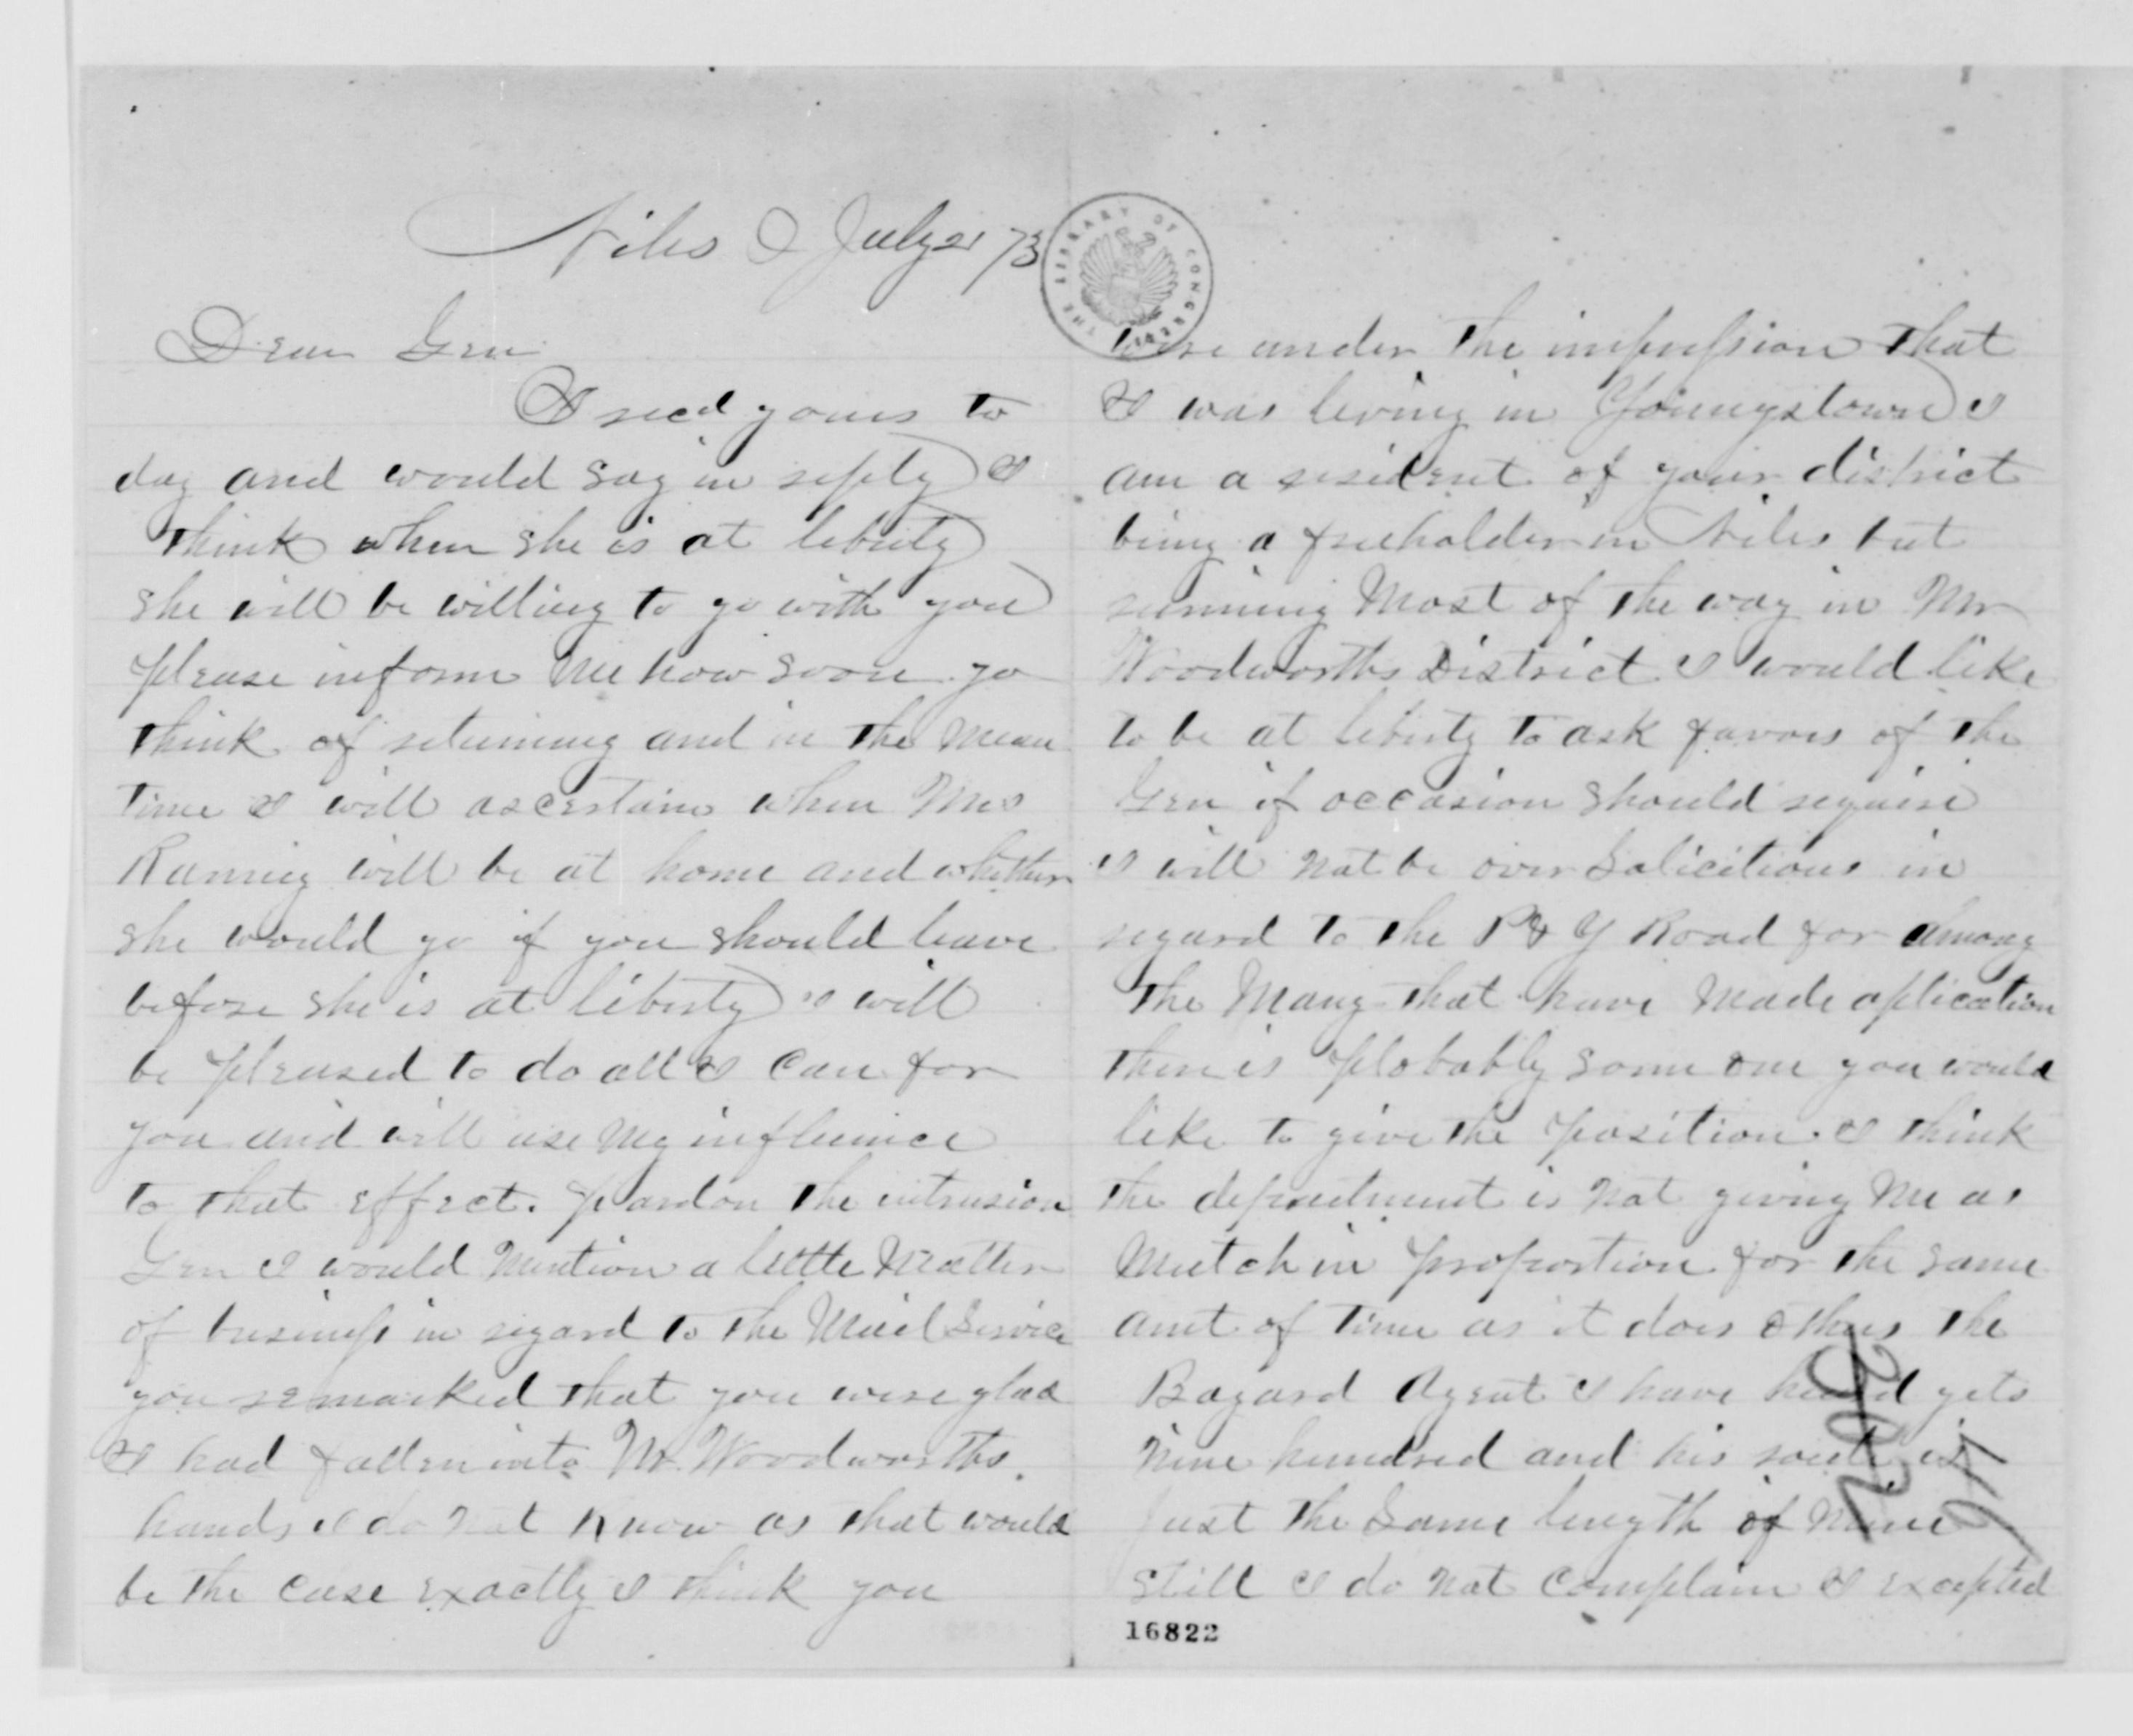 Niles O July 21 73
Dear Gen
I recd yours to
day and would say in reply I
think when she is at liberty
she will be willing to go with you
please inform me how soon yo
think of returning and in the mean
time I will ascertain when Mrs
Running will be at home and whether
she would go if you should leave
before she is at liberty I will
be pleased to do all I can for
you and will use my influince
to that effect. pardon the intrusion
Gen I would mention a little matter
of business in regard to the Mail Service
you remarked that you were glad
I had fallen into Mr. Woodworths.
hands I do not know as that would
be the case exactly I think you
THE LIBRARY OF CONGRESS
were under the impression that
I was living in Youngstown I
am a resident of your district
being a freeholder in Niles but
running most of the way in Mr
Woodworths District I would like
to be at liberty to ask favors of the
Gen if occasion should require
I will not be over Solicitious in
regard to the P & Y Road for among
the many that have made aplication
there is plobably some one you would
like to give the position. I think
the department is not giving me as
mutch in proportion for the same
amt of time as it does others the
Bagard Agent I have heard gets
nine hundred and his route is
just the same length of mine
still I do not complain I excepted
16822